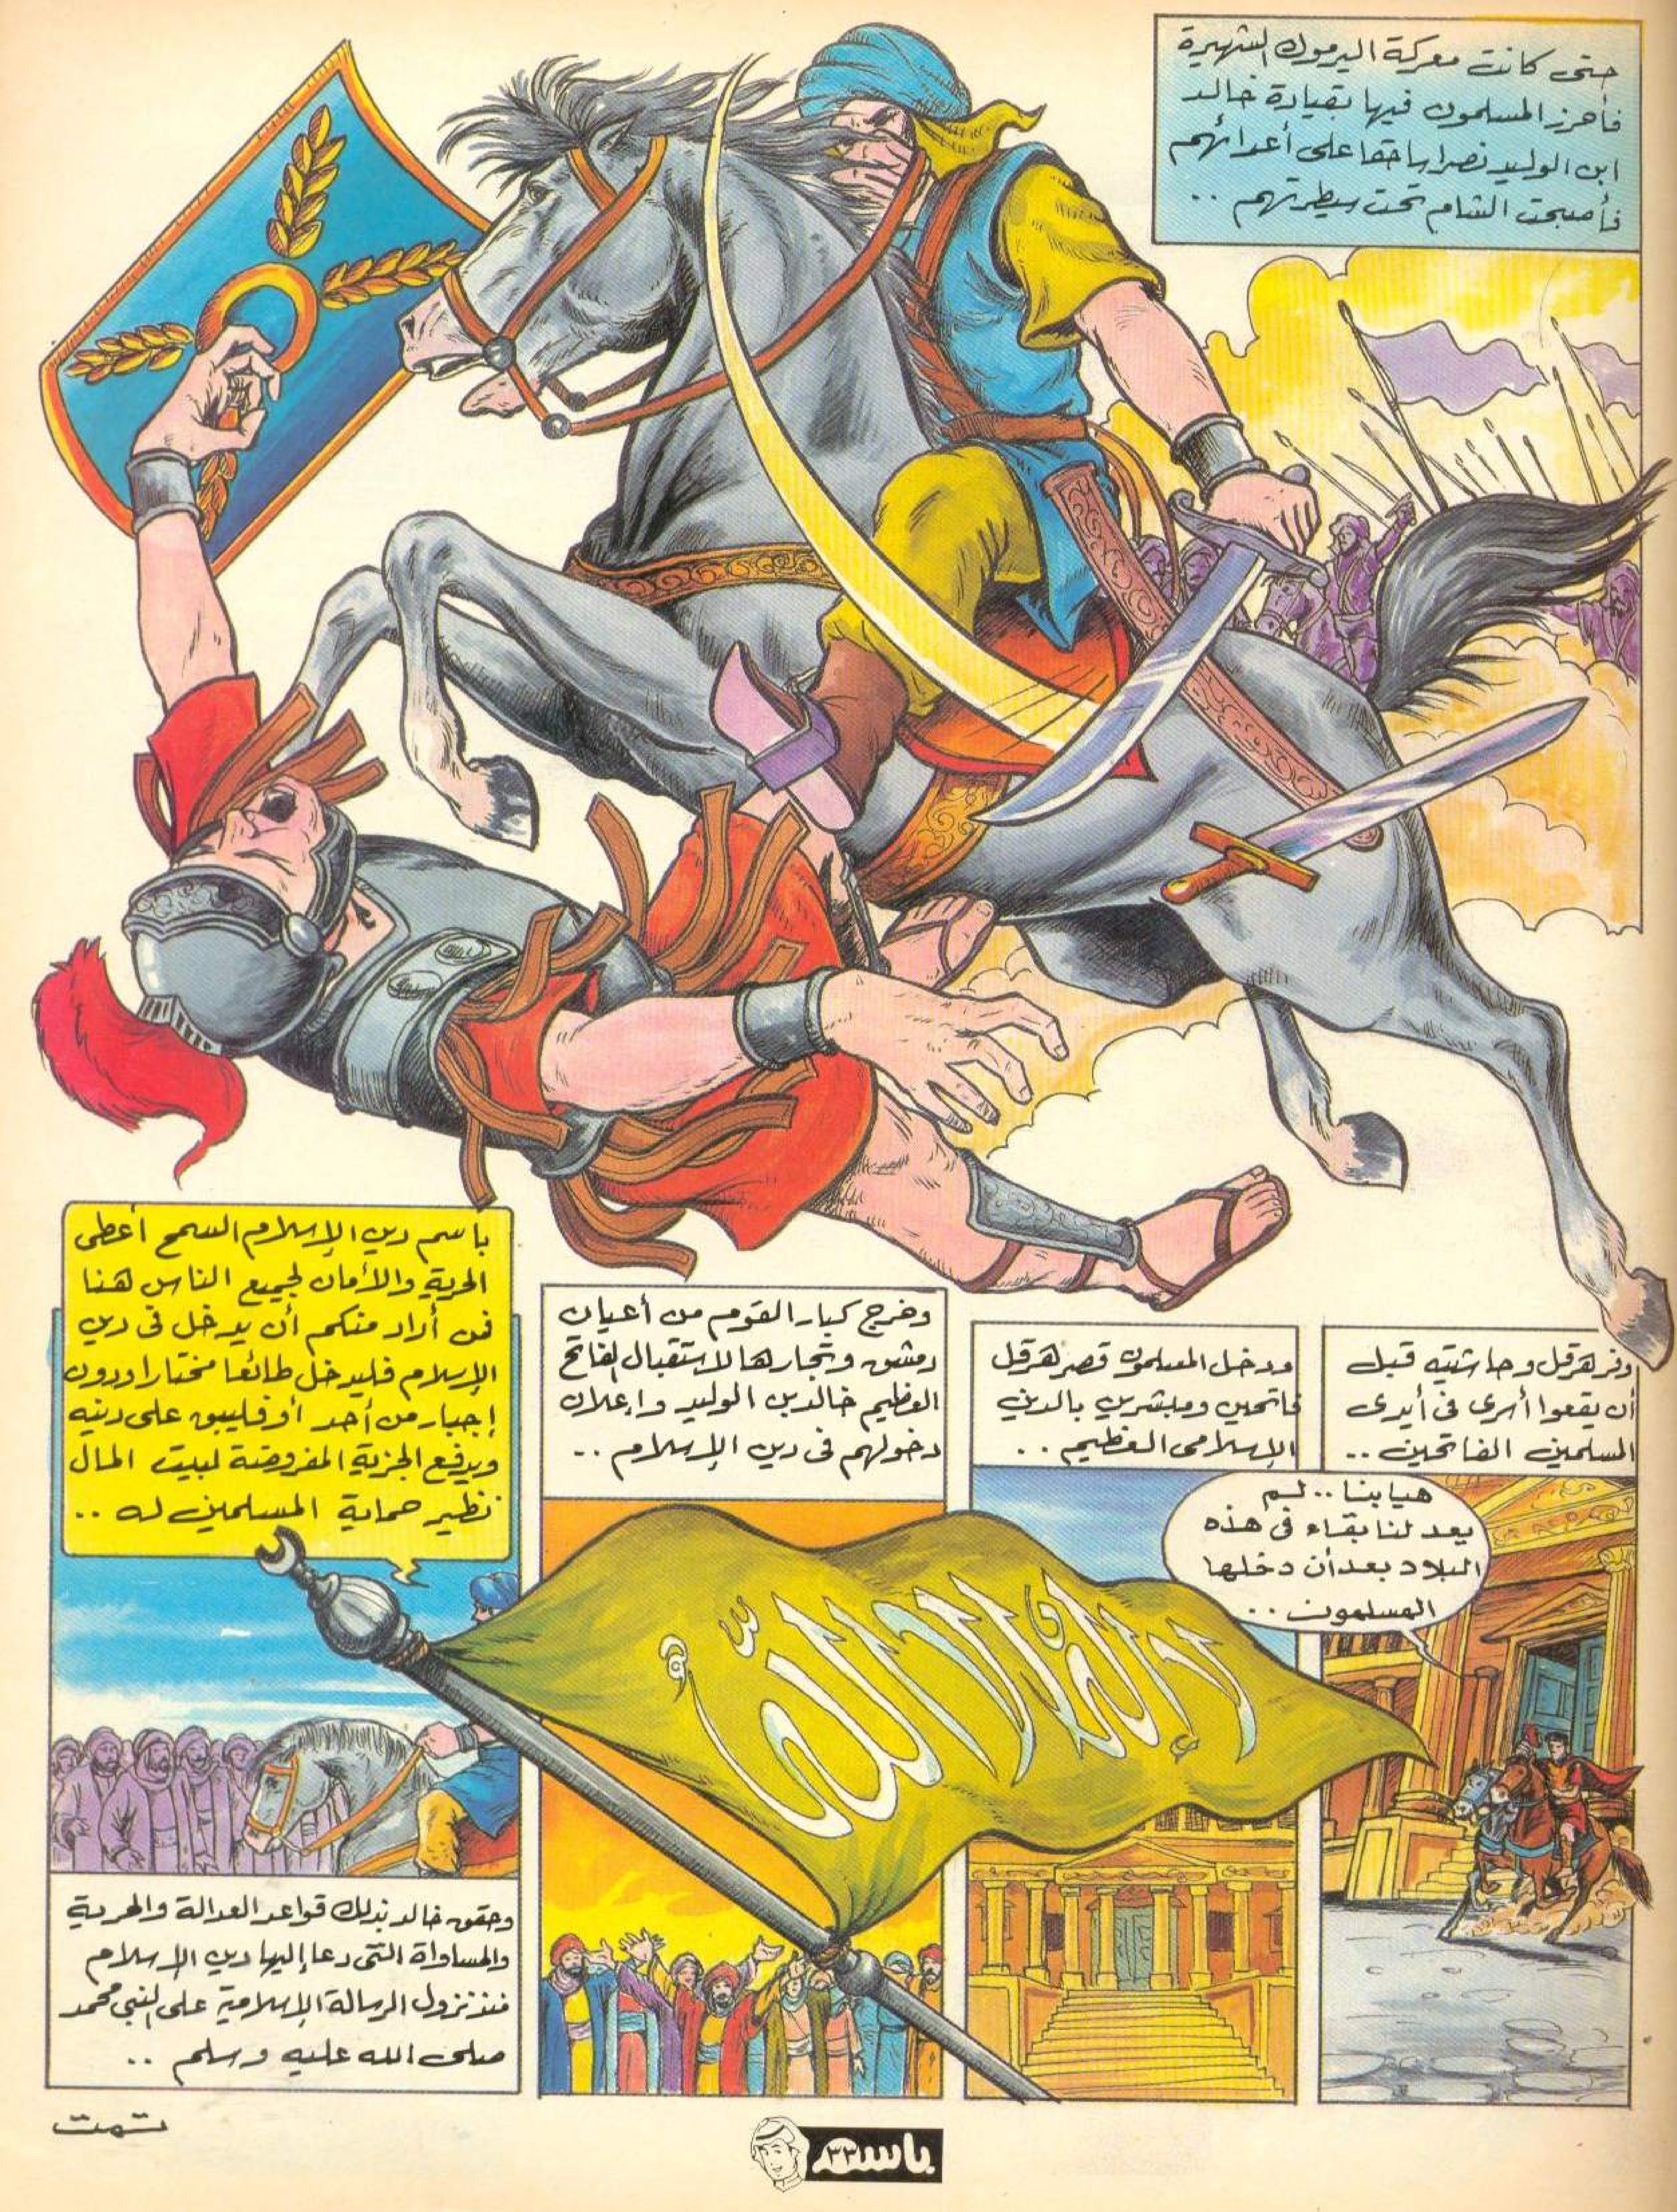 حتى كانت معركة اليرموك الشهيرة
فأحرز المسلمون فيها بقيادة خالد
ابن الوليد نصرا ساحقا على أعدائهم
فأصبحت الشام تحت سيطرتهم ..
وفر هرقل وحاشيته قبل
أن يقعوا أسرى فى أيدى
المسلمين الفاتحين ..
هيا بنا .. لم
يعد لنا بقاء فى هذه
البلاد بعد أن دخلها
المسلمون ..
ودخل المسلمون قصر هرقل
فاتحين ومبشرين بالدين
الإسلامى العظيم ..
وخرج كبار القوم من أعيان
دمشق وتجارها لاستقبال الفاتح
العظيم خالد بن الوليد وإعلان
دخولهم فى دين الإسلام ..
لا إله إلا الله
باسم دين الإسلام السمح أعطى
الحرية والأمان لجميع الناس هنا
فمن أراد منكم أن يدخل فى دين
الإسلام فليدخل طائعا مختارا ودون
إجبار من أحد أو فليبق على دينه
ويدفع الجزية المفروضة لبيت المال
نظير حماية المسلمين له ..
وحقق خالد بذلك قواعد العدالة والحرية
والمساواة التى دعا إليها دين الإسلام
منذ نزول الرسالة الإسلامية على النبى محمد
صلى الله عليه وسلم ..
تمت
باسم ٣٣